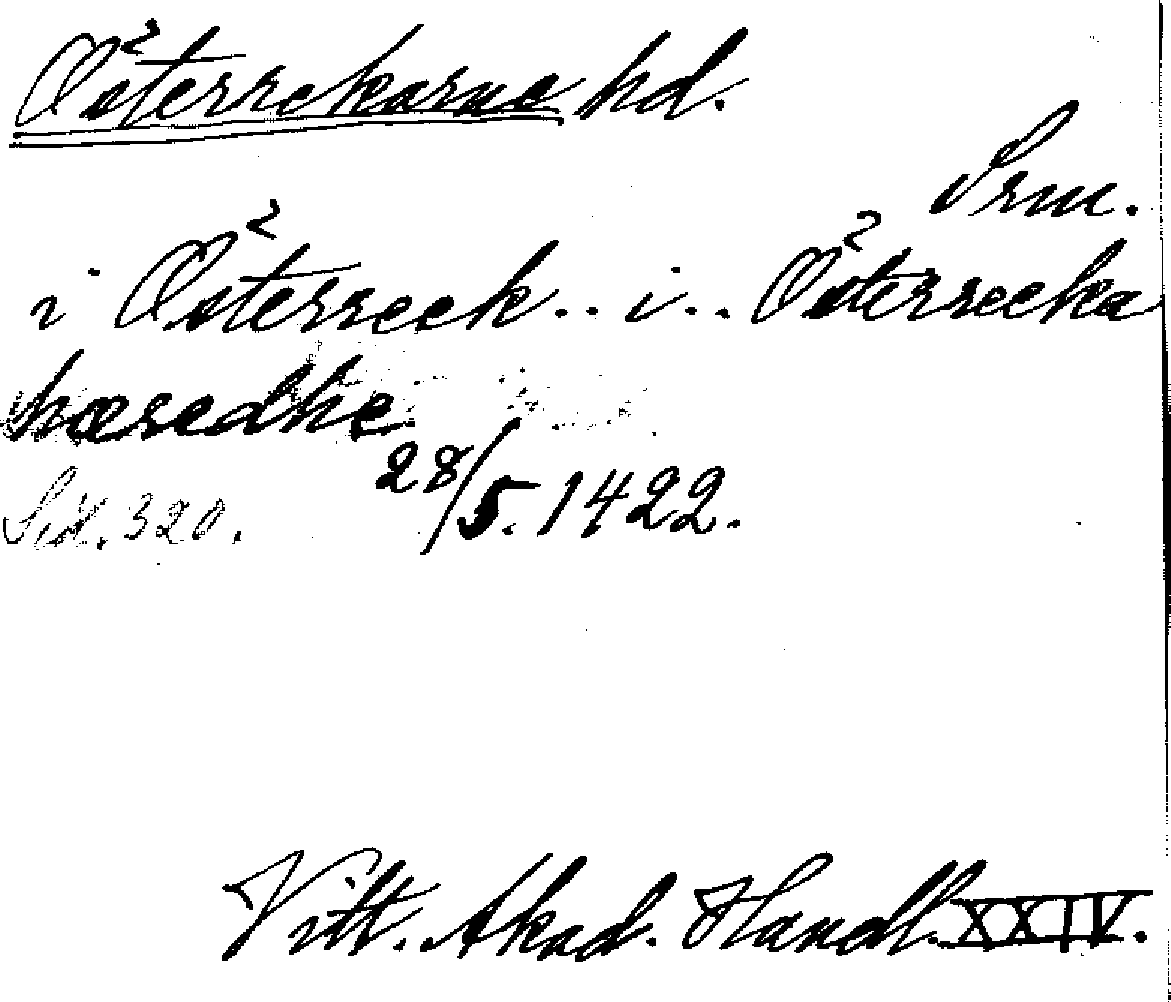 Österrekarne hd.
Srm.
i Österreek.. i.. Österreeka
hæredhe
28/5. 1422.
Sid. 320.
Vitt. Akad. Handl. XXIV.